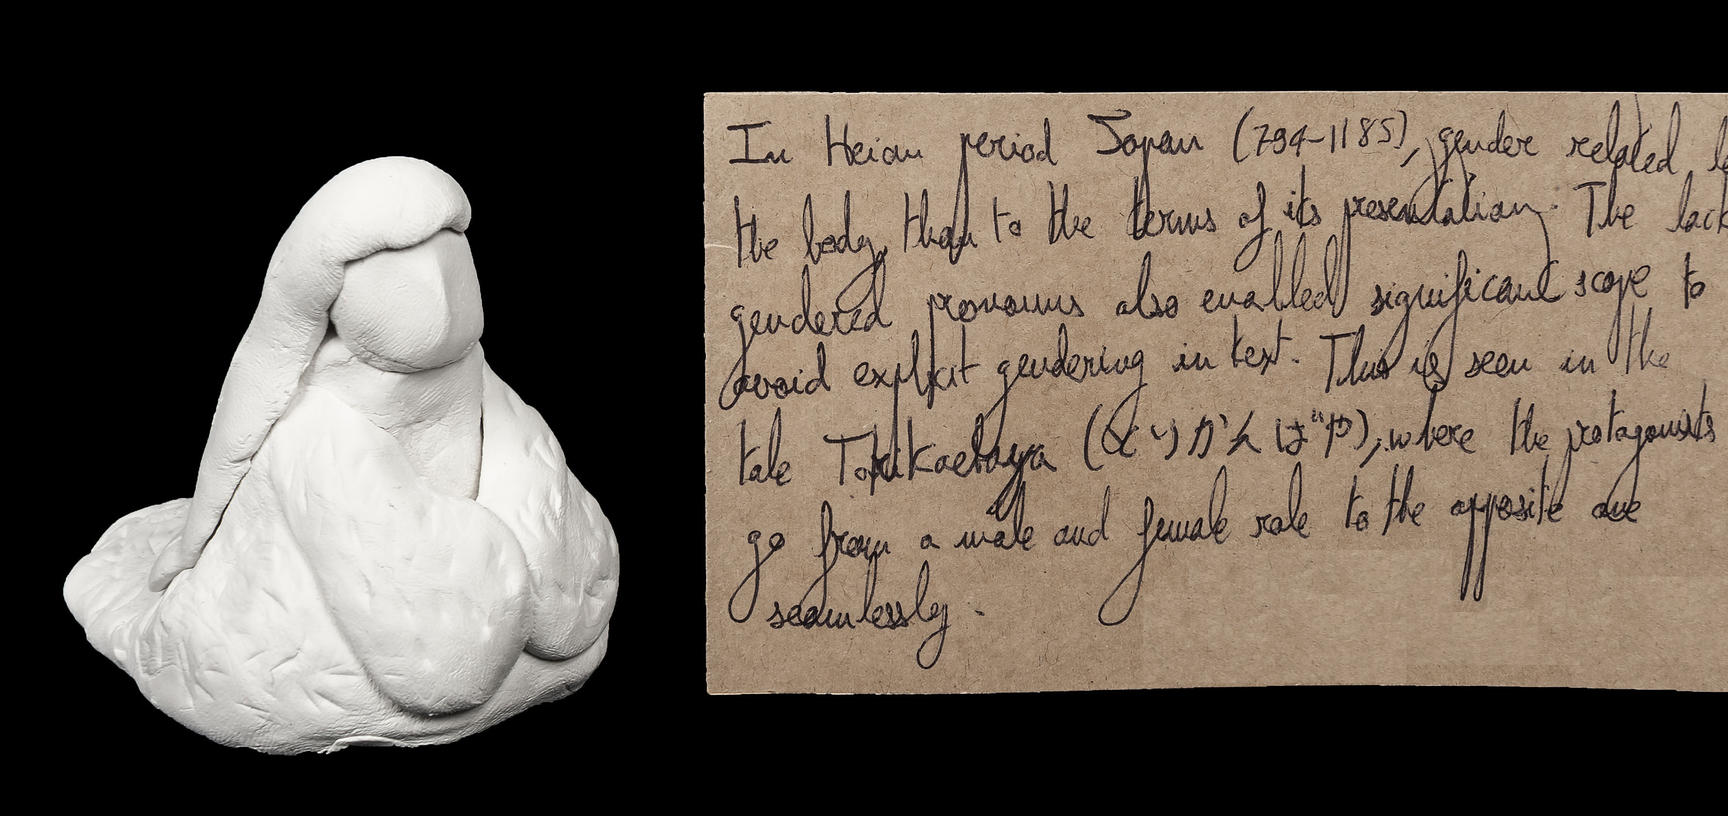 In Heian period Japan (794-1185), gender related l
the body, than to the terms of its presentation. The lack
gendered pronouns also enabled significant scope to
avoid explicit gendering in text. This is seen in the
tale Torikaebaya (とりかへばや), where the protagonists
go from a male and female role to the opposite one
seamlessly.